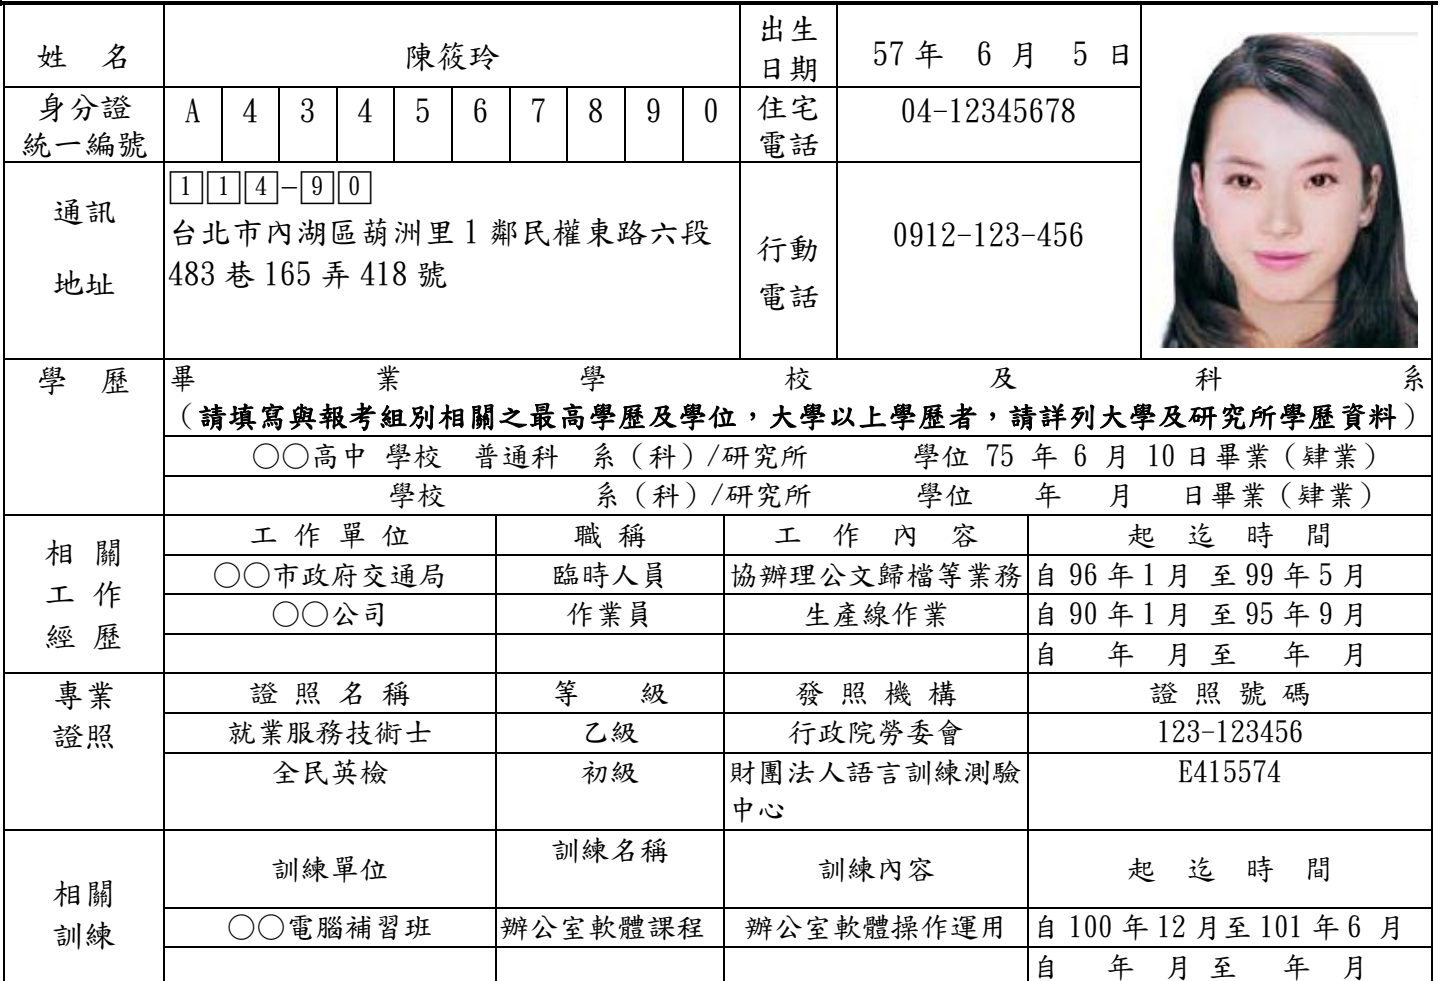 姓 名 陳筱玲 出生日期 57年 6月 5日
身分證統一編號 A 4 3 4 5 6 7 8 9 0 住宅電話 04-12345678
通訊地址 114-90
台北市內湖區葫洲里1鄰民權東路六段
483巷165弄418號
行動電話 0912-123-456
學 歷 畢 業 學 校 及 科 系
（請填寫與報考組別相關之最高學歷及學位，大學以上學歷者，請詳列大學及研究所學歷資料）
○○高中 學校 普通科 系（科）/研究所 學位 75 年 6 月 10日畢業（肄業）
學校 系（科）/研究所 學位 年 月 日畢業（肄業）
相關工作經歷 工作單位 職稱 工作內容 起迄時間
○○市政府交通局 臨時人員 協辦理公文歸檔等業務 自96年1月 至99年5月
○○公司 作業員 生產線作業 自90年1月 至95年9月
自 年 月至 年 月
專業證照 證照名稱 等 級 發照機構 證照號碼
就業服務技術士 乙級 行政院勞委會 123-123456
全民英檢 初級 財團法人語言訓練測驗中心 E415574
相關訓練 訓練單位 訓練名稱 訓練內容 起迄時間
○○電腦補習班 辦公室軟體課程 辦公室軟體操作運用 自100年12月至101年6 月
自 年 月至 年 月